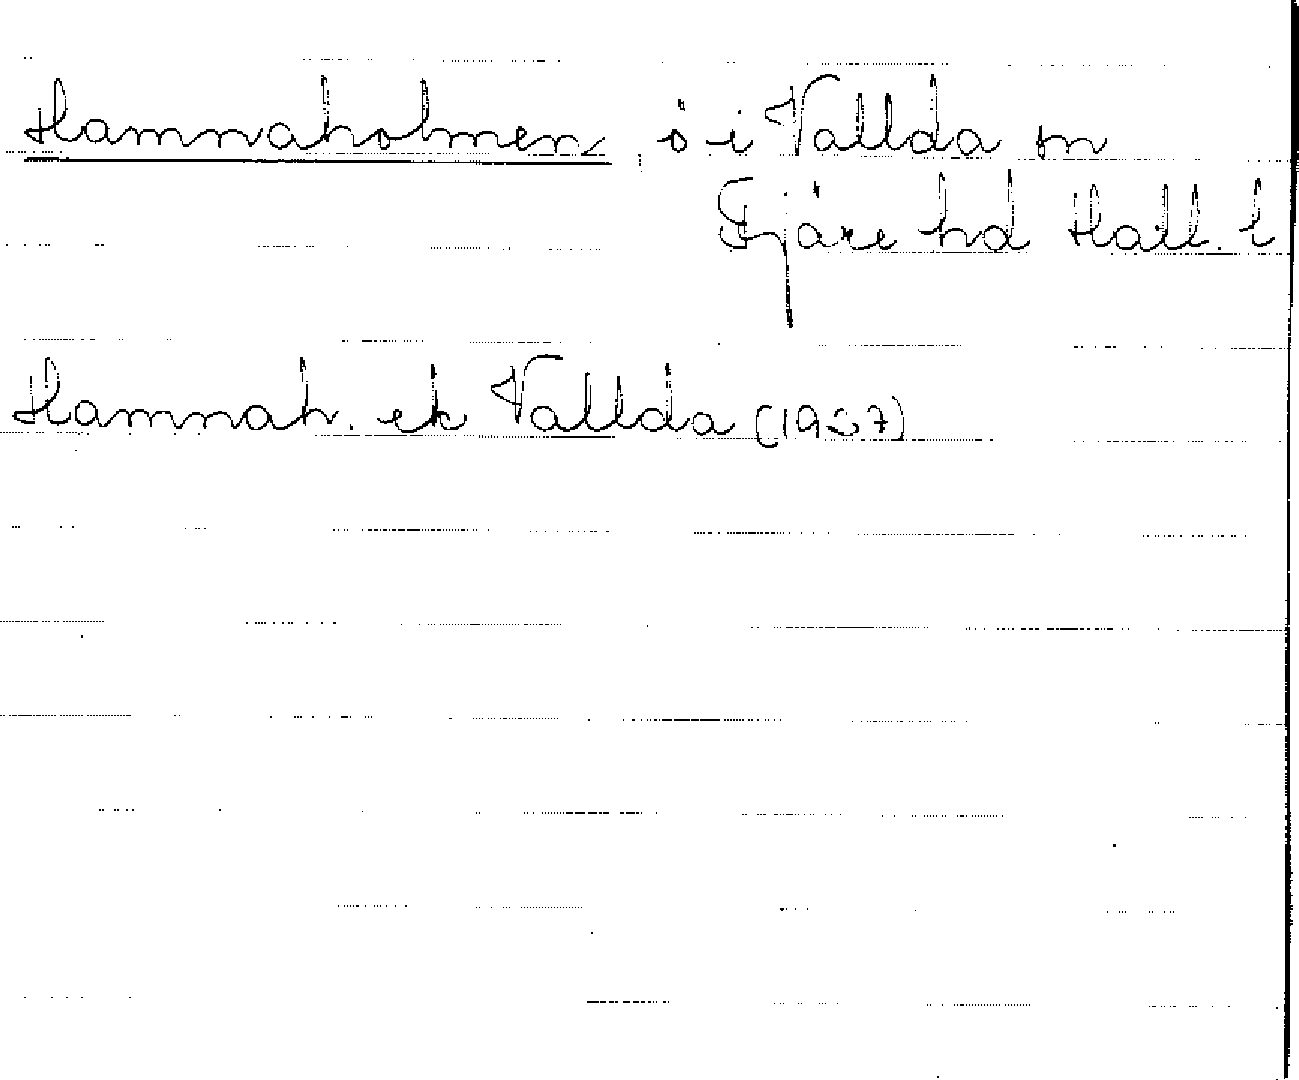 Hamnaholmen, ö i Vallda sn
Fjäre hd Hall. l
Hamnah. ek Vallda